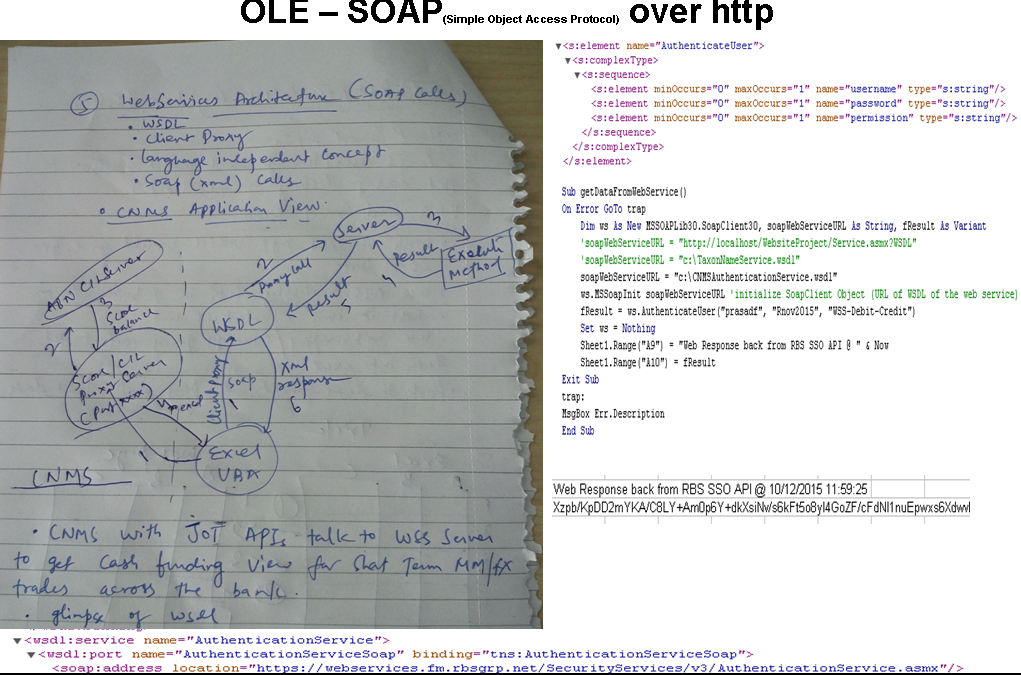 OLE – SOAP(Simple Object Access Protocol) over http
⑤ WebServices Architecture (SOAP Calls)
• WSDL
• Client Proxy
• Language independent concept
• Soap (xml) calls
• CNMS Application View
Server
3
Execute
Method
result
4
2
Proxy call
result
5
ABN CIL Server
3
Score
balance
2
WSDL
Score/CIL
Proxy Server
Client Proxy
soap
1
xml
response
6
1
Excel
VBA
CNMS
• CNMS with JOT APIs talk to WSS Server
to get Cash funding View for Short Term MM/FX
trades across the bank.
• glimpse of WSDL
▼<s:element name="AuthenticateUser">
▼<s:complexType>
▼<s:sequence>
<s:element minOccurs="0" maxOccurs="1" name="username" type="s:string"/>
<s:element minOccurs="0" maxOccurs="1" name="password" type="s:string"/>
<s:element minOccurs="0" maxOccurs="1" name="permission" type="s:string"/>
</s:sequence>
</s:complexType>
</s:element>
Sub getDataFromWebService()
On Error GoTo trap
Dim ws As New MSSOAPLib30.SoapClient30, soapWebServiceURL As String, fResult As Variant
'soapWebServiceURL = "http://localhost/WebsiteProject/Service.asmx?WSDL"
'soapWebServiceURL = "c:\TaxonNameService.wsdl"
soapWebServiceURL = "c:\CNMSAuthenticationService.wsdl"
ws.MSSoapInit soapWebServiceURL 'initialize SoapClient Object (URL of WSDL of the web service)
fResult = ws.AuthenticateUser("prasadf", "Rnov2015", "WSS-Debit-Credit")
Set ws = Nothing
Sheet1.Range("A9") = "Web Response back from RBS SSO API @ " & Now
Sheet1.Range("A10") = fResult
Exit Sub
trap:
MsgBox Err.Description
End Sub
Web Response back from RBS SSO API @ 10/12/2015 11:59:25
▼<wsdl:service name="AuthenticationService">
▼<wsdl:port name="AuthenticationServiceSoap" binding="tns:AuthenticationServiceSoap">
<soap:address location="https://webservices.fm.rbsgrp.net/SecurityServices/v3/AuthenticationService.asmx"/>